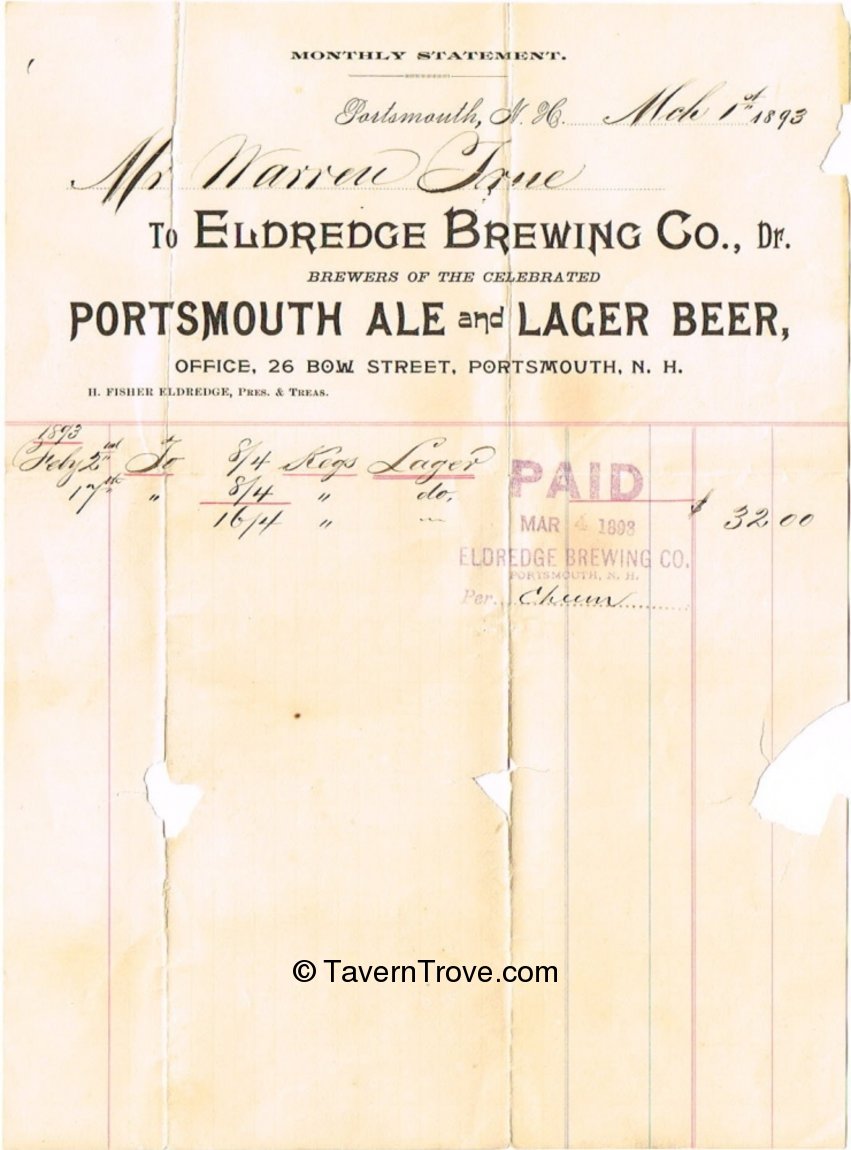 MONTHLY STATEMENT.
Portsmouth, N. H. Mch 1st 1893
Mr Warren True
To ELDREDGE BREWING CO., Dr.
BREWERS OF THE CELEBRATED
PORTSMOUTH ALE and LAGER BEER,
OFFICE, 26 BOW STREET, PORTSMOUTH, N. H.
H. FISHER ELDREDGE, PRES. & TREAS.
1893
Feby 2nd To 8/4 Kegs Lager
17th " 8/4 " do.
16/4 " — $ 32 00
PAID
MAR 4 1893
ELDREDGE BREWING CO.
PORTSMOUTH, N. H.
Per.
© TavernTrove.com